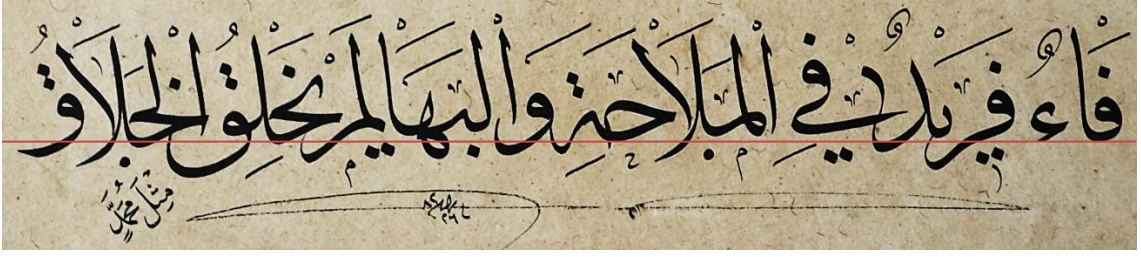 فَاءٌ فَرِيدٌ فِي الْمَلَاحَةِ وَالْبَهَا لَمْ يَخْلِقُ الْخَلَّاقُ
مِثْلَ مُحَمَّدٍ